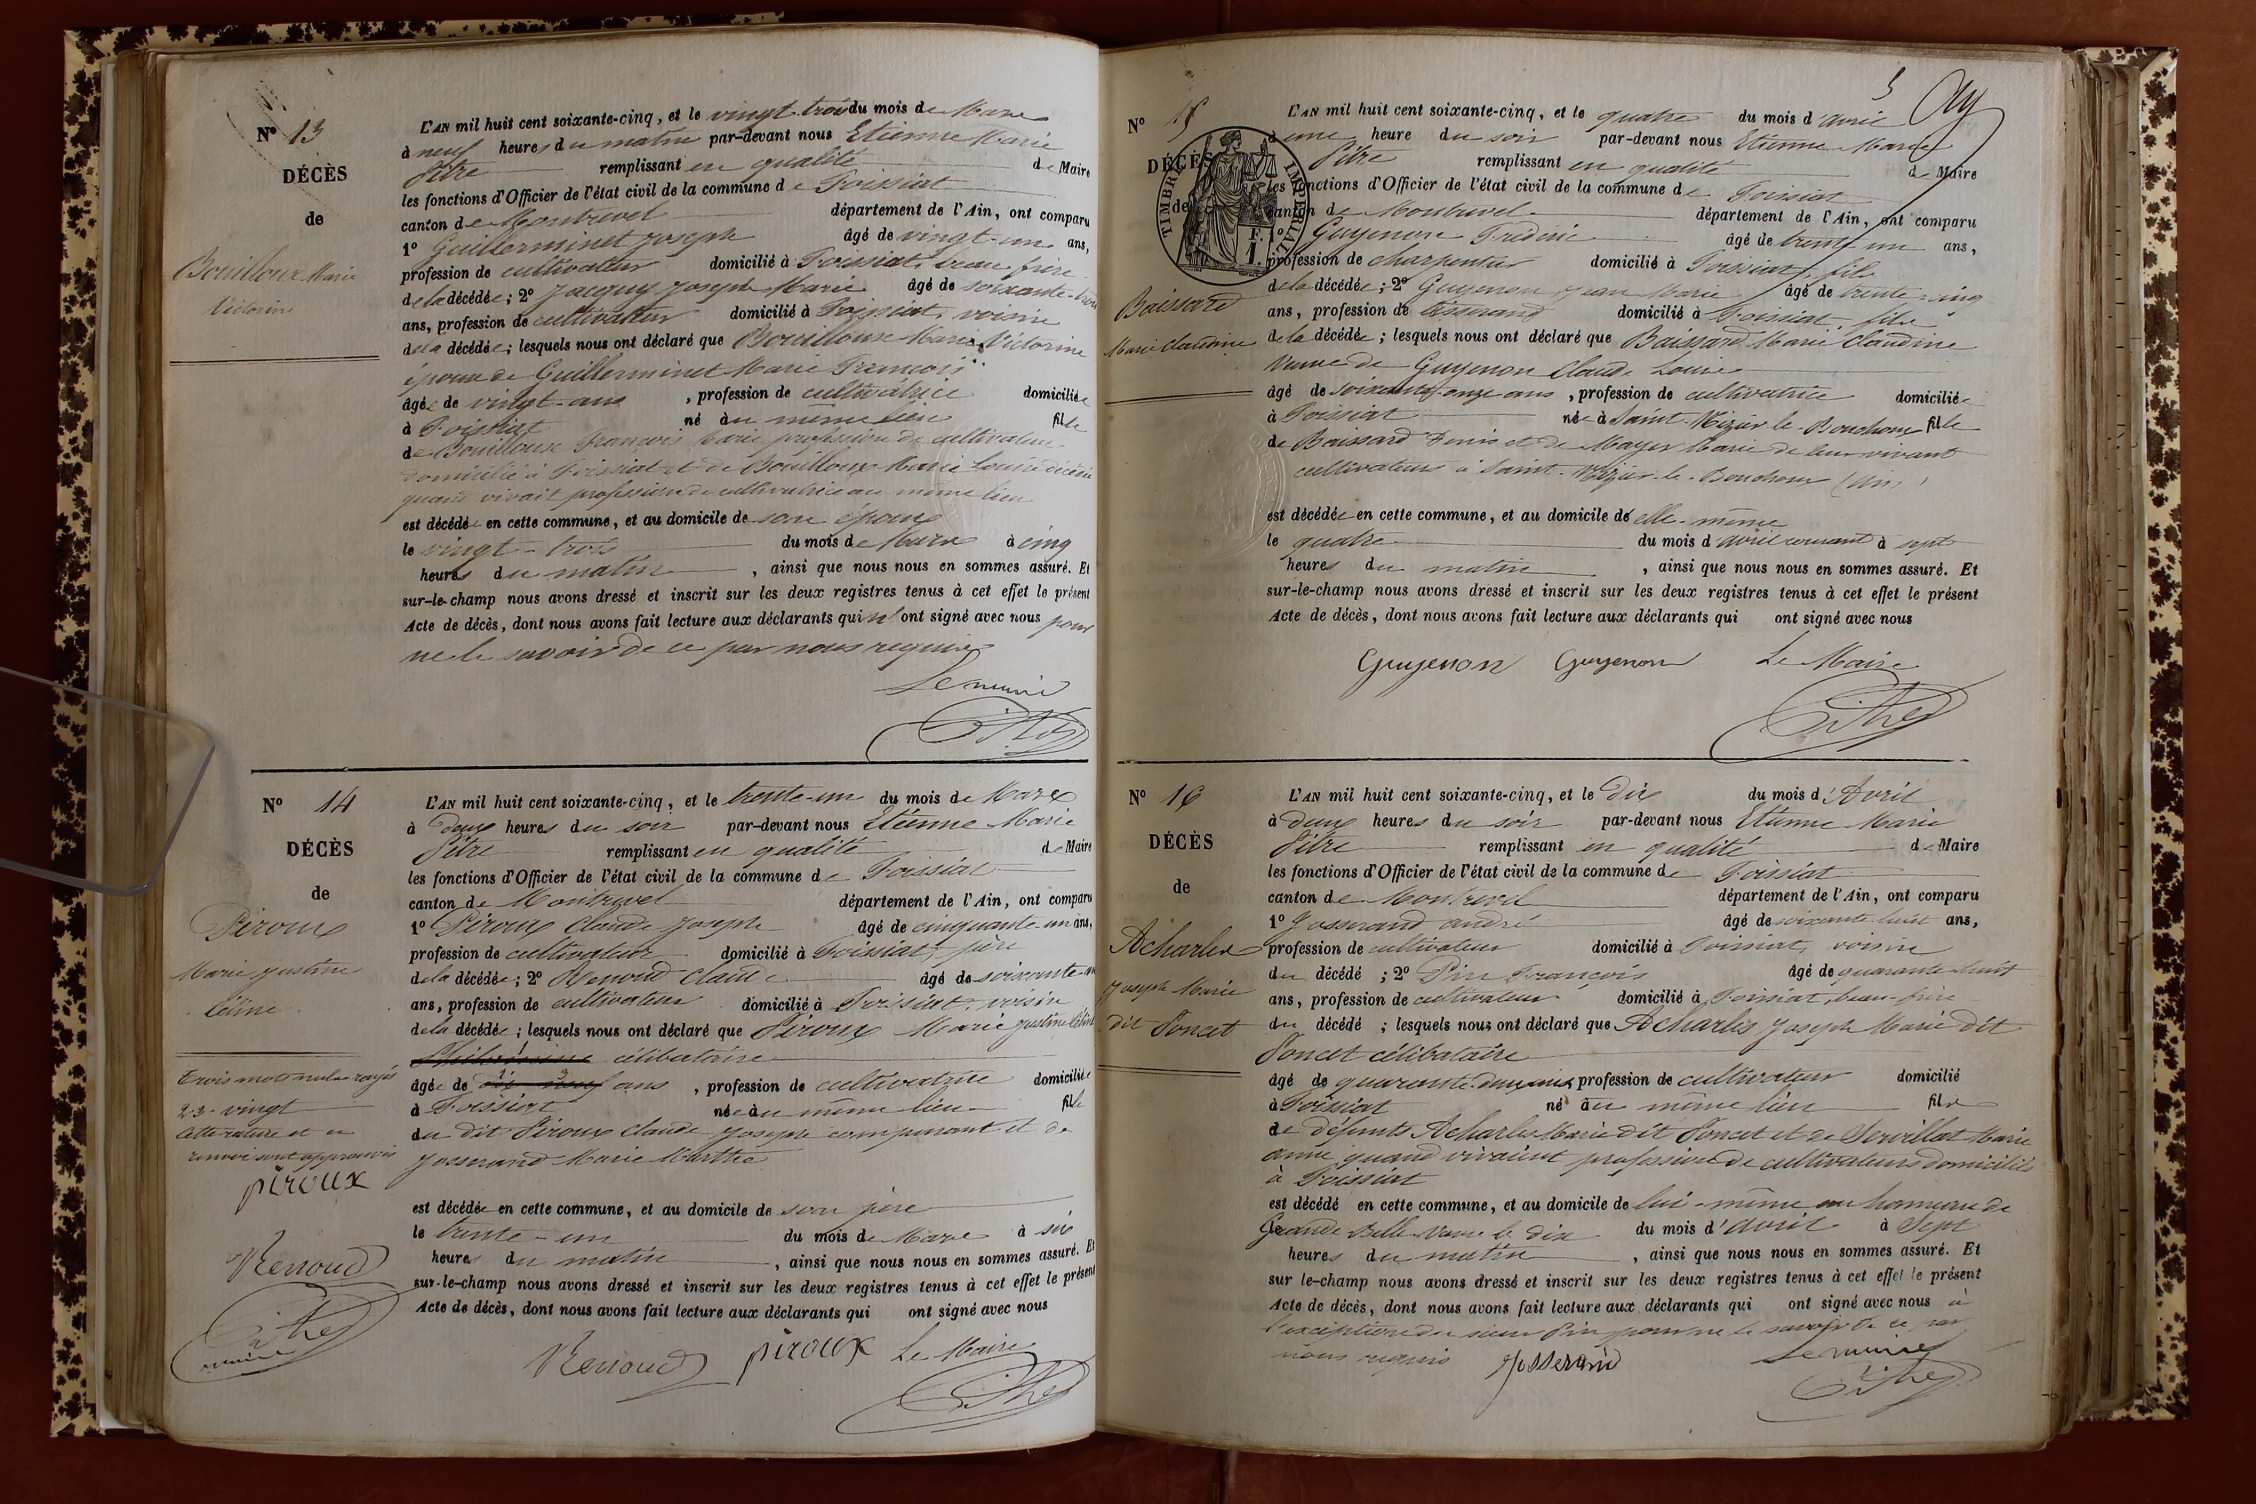 N° 13
DÉCÈS
de
Bouilloux Marie
Victorine
L'AN mil huit cent soixante-cinq, et le vingt trois du mois de Mars
à neuf heures du matin par-devant nous Etienne Marie
Pitre remplissant en qualité de Maire
les fonctions d'Officier de l'état civil de la commune de Foissiat
canton de Montrevel département de l'Ain, ont comparu
1° Guillerminet Joseph âgé de vingt-un ans,
profession de cultivateur domicilié à Foissiat, beau frère
de la décédée; 2° Jacquy Joseph Marie âgé de soixante-trois
ans, profession de cultivateur domicilié à Foissiat, voisin
de la décédée; lesquels nous ont déclaré que Bouilloux Marie Victorine
épouse de Guillerminet Marie François
âgée de vingt-ans, profession de cultivatrice domiciliée
à Foissiat né au même lieu fille
de Bouilloux François Marie profession de cultivateur
domicilié à Foissiat et de Bouilloux Marie Louise décédée
quand vivait profession de cultivatrice au même lieu
est décédée en cette commune, et au domicile de son époux
le vingt-trois du mois de Mars à cinq
heures du matin, ainsi que nous nous en sommes assuré. Et
sur-le-champ nous avons dressé et inscrit sur les deux registres tenus à cet effet le présent
Acte de décès, dont nous avons fait lecture aux déclarants qui n'ont signé avec nous pour
ne le savoir de ce par nous requis
Le maire
Pitre
N° 14
DÉCÈS
de
Piroux
Marie Justine
Céline
trois mots nuls rayés
2-3- vingt
Cette rature et un
renvoi sont approuvés
piroux
Renoud
Pitre
maire
L'AN mil huit cent soixante-cinq, et le trente-un du mois de Mars
à deux heures du soir par-devant nous Etienne Marie
Pitre remplissant en qualité de Maire
les fonctions d'Officier de l'état civil de la commune de Foissiat
canton de Montrevel département de l'Ain, ont comparu
1° Piroux Claude Joseph âgé de cinquante un ans,
profession de cultivateur domicilié à Foissiat, père
de la décédée; 2° Renoud Claude âgé de soixante-un
ans, profession de cultivateur domicilié à Foissiat, voisin
de la décédée; lesquels nous ont déclaré que Piroux Marie Justine Céline
célibataire
âgée de dix neuf ans, profession de cultivatrice domiciliée
à Foissiat née au même lieu fille
du dit Piroux Claude Joseph comparant et de
Josserand Marie Marthe
est décédée en cette commune, et au domicile de son père
le trente-un du mois de Mars à six
heures du matin, ainsi que nous nous en sommes assuré. Et
sur-le-champ nous avons dressé et inscrit sur les deux registres tenus à cet effet le présent
Acte de décès, dont nous avons fait lecture aux déclarants qui ont signé avec nous
Renoud piroux Le Maire
Pitre
N° 15
DÉCÈS
de
TIMBRE IMPÉRIAL
F.
1.
Baissard
Marie Claudine
L'AN mil huit cent soixante-cinq, et le quatre du mois d'avril
à une heure du soir par-devant nous Etienne Marie
Pitre remplissant en qualité de Maire
les fonctions d'Officier de l'état civil de la commune de Foissiat
canton de Montrevel département de l'Ain, ont comparu
1° Guyenon Frédéric âgé de trente un ans,
profession de charpentier domicilié à Foissiat, fils
de la décédée; 2° Guyenon Jean Marie âgé de trente-cinq
ans, profession de tisserand domicilié à Foissiat, fils
de la décédée; lesquels nous ont déclaré que Baissard Marie Claudine
Veuve de Guyenon Claude Louis
âgé de soixante-onze ans, profession de cultivatrice domiciliée
à Foissiat née à Saint-Nizier-le-Bouchoux fille
de Baissard Denis et de Mayer Marie de leur vivant
cultivateurs à Saint-Nizier-le-Bouchoux (Ain)
est décédée en cette commune, et au domicile de elle-même
le quatre du mois d'avril courant à sept
heures du matin, ainsi que nous nous en sommes assuré. Et
sur-le-champ nous avons dressé et inscrit sur les deux registres tenus à cet effet le présent
Acte de décès, dont nous avons fait lecture aux déclarants qui ont signé avec nous
Guyenon Guyenon Le Maire
Pitre
N° 16
DÉCÈS
de
Acharles
Joseph Marie
dit Poncet
L'AN mil huit cent soixante-cinq, et le Dix du mois d'Avril
à deux heures du soir par-devant nous Etienne Marie
Pitre remplissant en qualité de Maire
les fonctions d'Officier de l'état civil de la commune de Foissiat
canton de Montrevel département de l'Ain, ont comparu
1° Josserand André âgé de soixante-huit ans,
profession de cultivateur domicilié à Foissiat, voisin
du décédé; 2° Pin François âgé de quarante-huit
ans, profession de cultivateur domicilié à Foissiat, beau-frère
du décédé; lesquels nous ont déclaré que Acharles Joseph Marie dit
Poncet célibataire
âgé de quarante-deux ans, profession de cultivateur domicilié
à Foissiat né au même lieu fils
de défunts Acharles Marie dit Poncet et de Servillat Marie
anne quand vivaient profession de cultivateurs domiciliés
à Foissiat
est décédé en cette commune, et au domicile de lui-même au hameau de
Grande Belle Vavre le dix du mois d'avril à Sept
heures du matin, ainsi que nous nous en sommes assuré. Et
sur le-champ nous avons dressé et inscrit sur les deux registres tenus à cet effet le présent
Acte de décès, dont nous avons fait lecture aux déclarants qui ont signé avec nous à
l'exception du sieur Pin pour ne le savoir de ce par
nous requis Josserand Le maire
Pitre